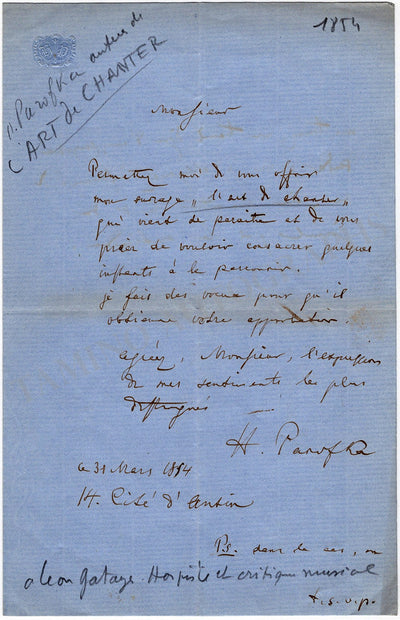 1854
H. Panofka auteur de
L'ART de CHANTER
Monsieur
Permettez moi de vous offrir
mon ouvrage „l'art de chanter"
qui vient de paraitre et de vous
prier de vouloir consacrer quelques
instants à le parcourir.
je fais des voeux pour qu'il
obtienne votre approbation.
agréez, Monsieur, l'expression
de mes sentiments les plus
distingués
H. Panofka
ce 31 Mars 1854
14. Cité d'antin
Ps. dans le cas, ou
a Leon Gatayes. Harpiste et critique musical
t.s.v.p.